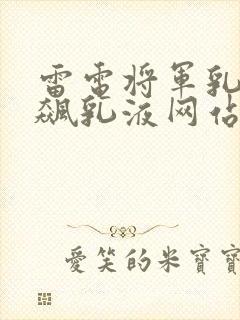 雷電將軍乳
飆乳液网佔
愛笑的米寶寶